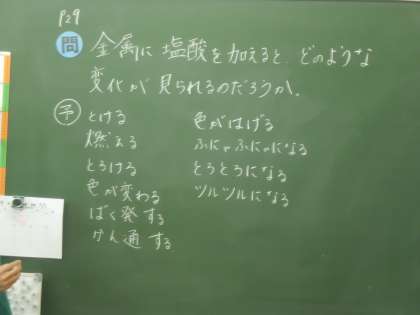 P29
問 金属に塩酸を加えると、どのような
変化が見られるのだろうか。
予 とける
燃える
とろける
色が変わる
ばく発する
かん通する
色がはげる
ふにゃふにゃになる
とろとろになる
ツルツルになる